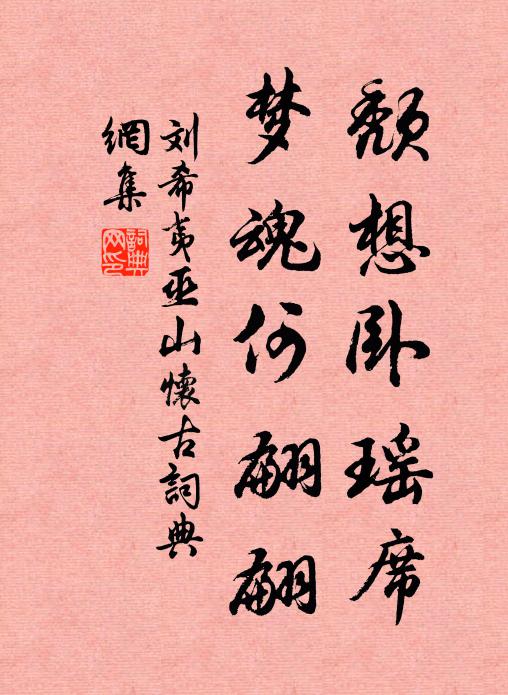 颓想卧瑶席
梦魂何翩翩
刘希夷巫山懷古詞典
網集
詞典网印